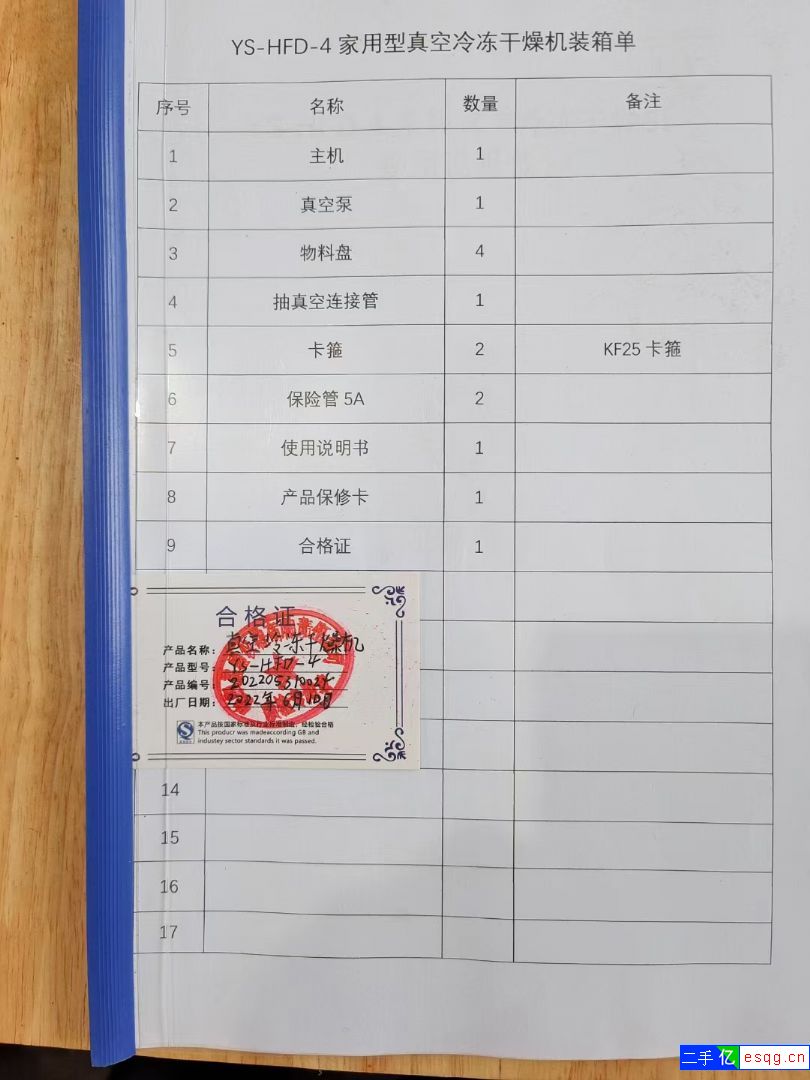 YS-HFD-4 家用型真空冷冻干燥机装箱单
序号 名称 数量 备注
1 主机 1
2 真空泵 1
3 物料盘 4
4 抽真空连接管 1
5 卡箍 2 KF25 卡箍
6 保险管 5A 2
7 使用说明书 1
8 产品保修卡 1
9 合格证 1
合格证
产品名称: 真空冷冻干燥机
产品型号: YS-HFD-4
产品编号:
出厂日期: 2022年6月10日
本产品按国家标准及行业标准制造，经检验合格
This producr was madeaccording GB and
industey sector standards it was passed.
14
15
16
17
二手亿 esqg.cn